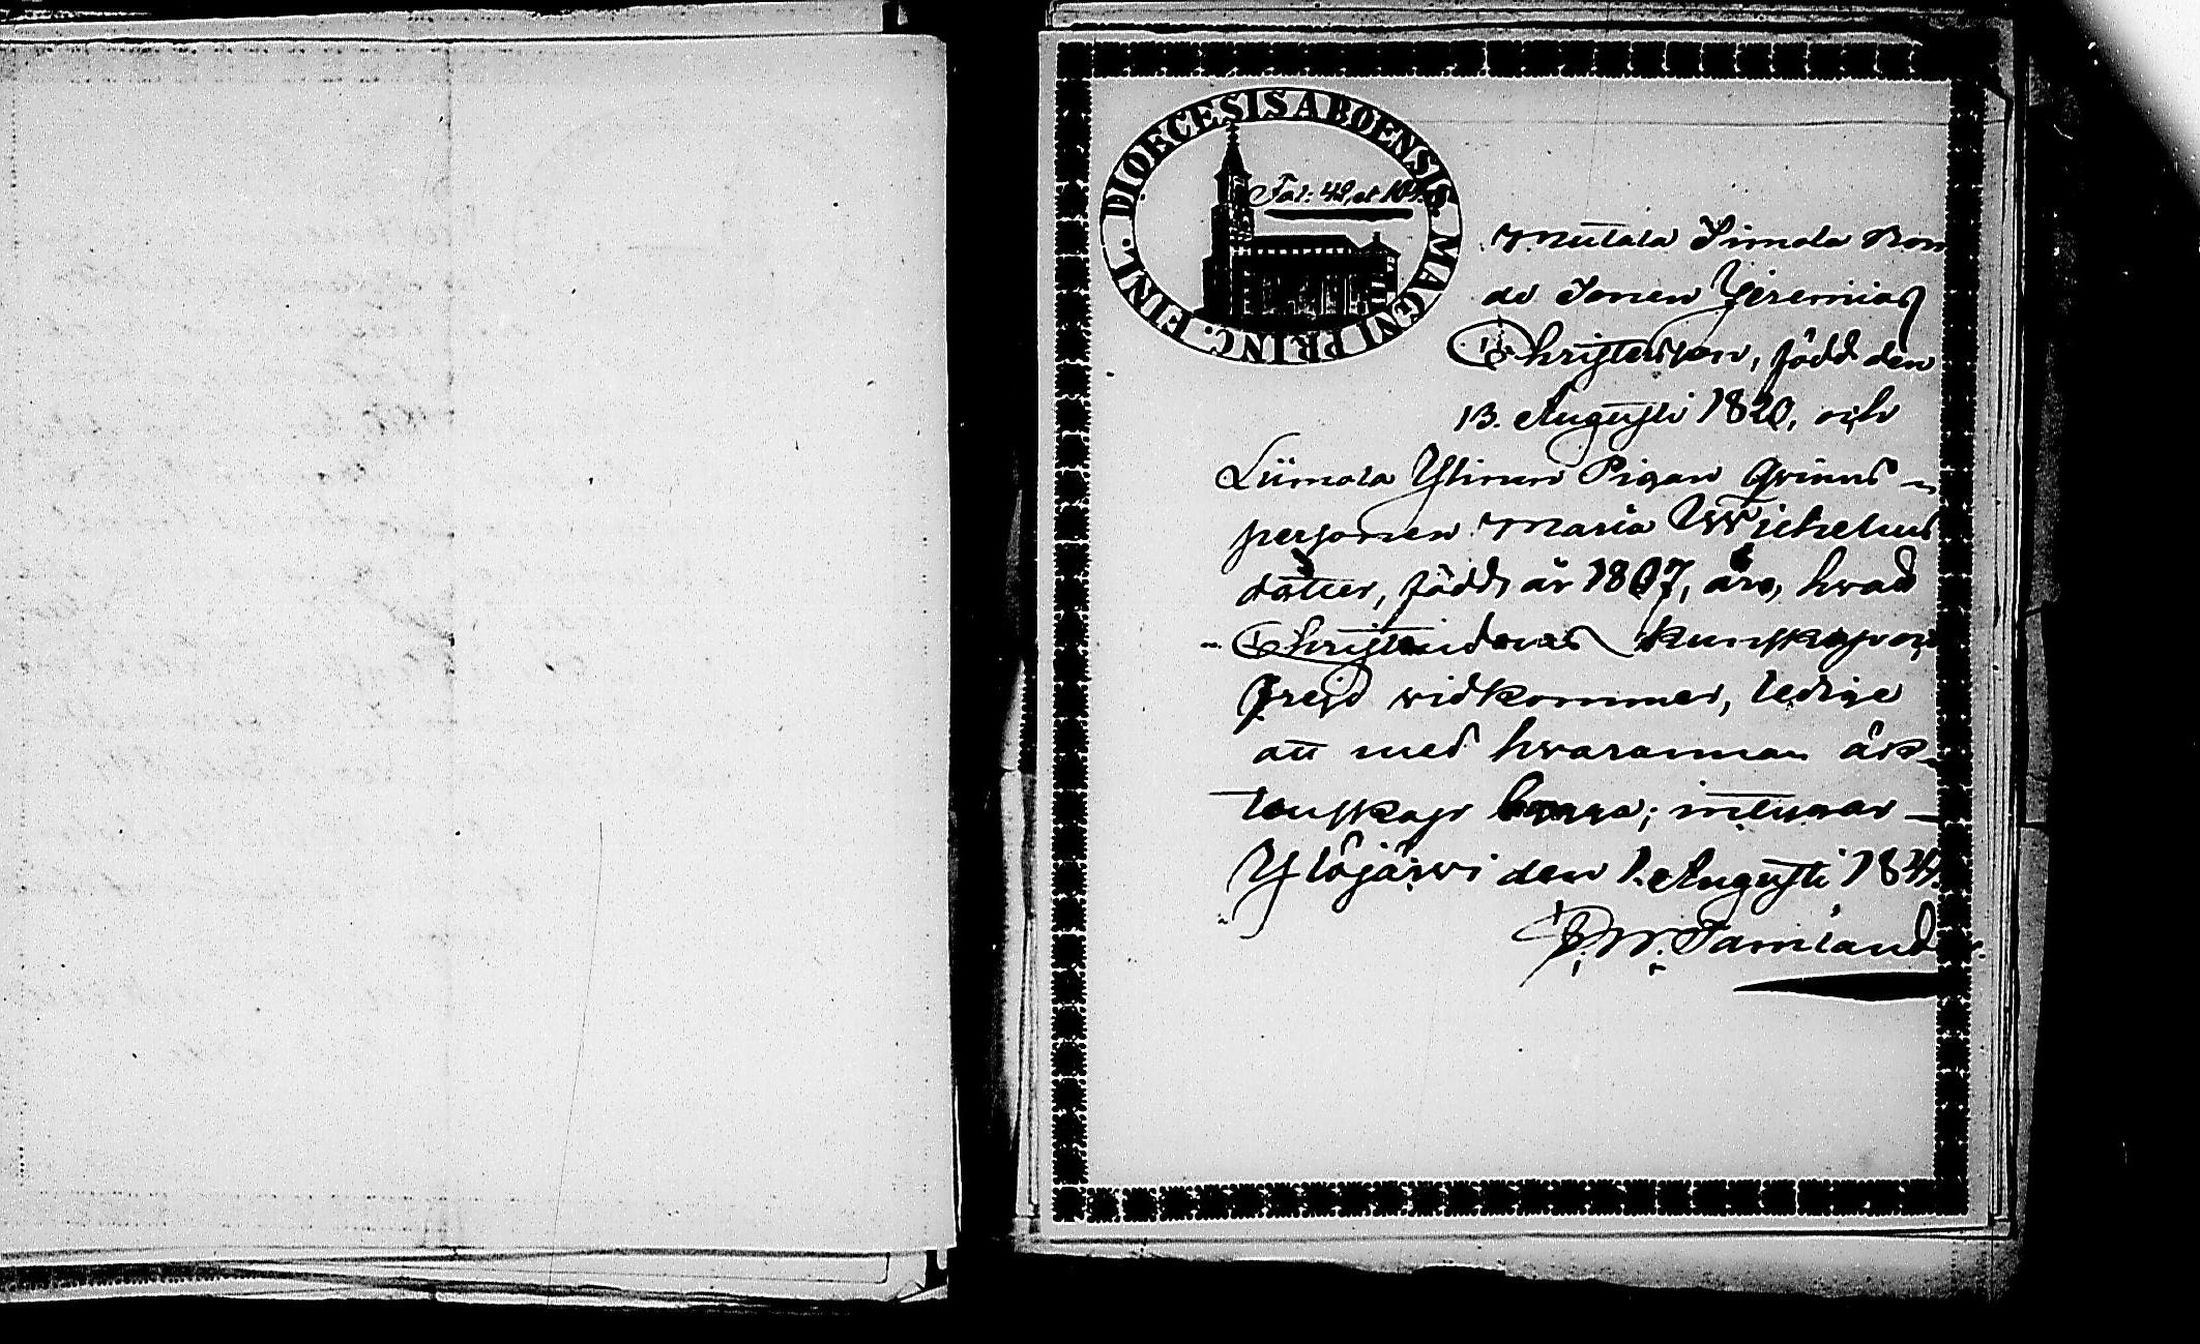 DIOECESIS ABOENSIS. MAGNI PRINC. FINL.
Fol: 42, et 104.
Mutala Simola Bon
de Sonen Jeremias
Christersson, född den
13. Augusti 1820, och
Liimola Ylinen Pigan Qvinns-
personen Maria Michelus
dotter, född år 1807, äro, hvad
Christendoms Kunskap och
Frejd widkommer, ledige
att med hvarannan äck-
tenskap bygga; intygar
Ylöjärvi den 1. Augusti 184
W. Tamland